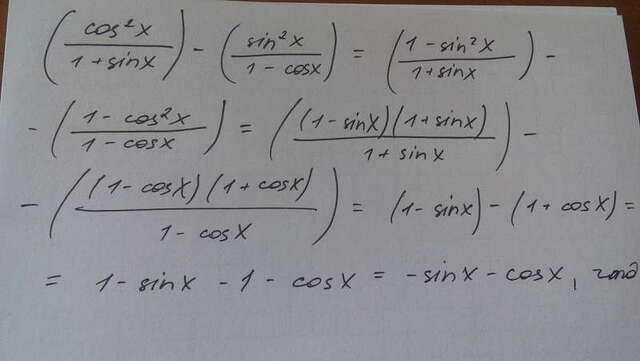 (cos²x / 1 + sinx) - (sin²x / 1 - cosx) = (1 - sin²x / 1 + sinx) -
- (1 - cos²x / 1 - cosx) = ((1 - sinx)(1 + sinx) / 1 + sinx) -
- ((1 - cosx)(1 + cosx) / 1 - cosx) = (1 - sinx) - (1 + cosx) =
= 1 - sinx - 1 - cosx = -sinx - cosx,